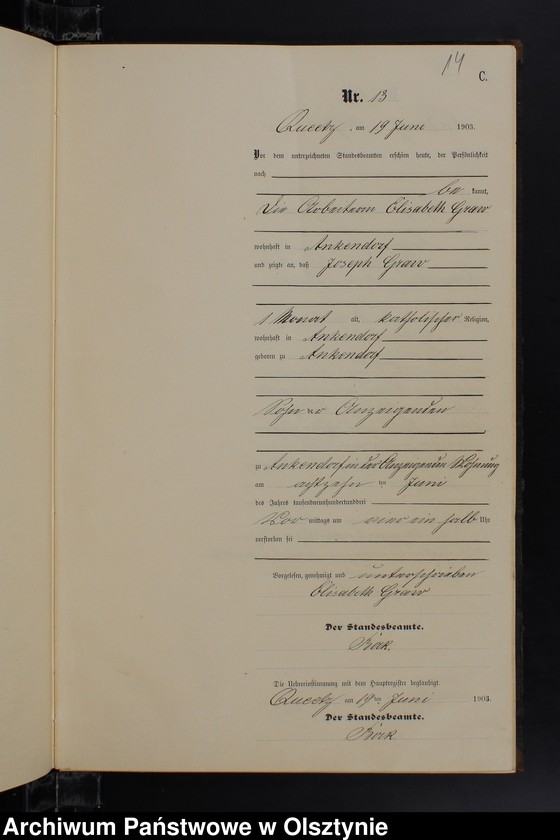 14
C.
Nr. 13
Queetz, am 19 Juni 1903.
Vor dem unterzeichneten Standesbeamten erschien heute, der Persönlichkeit
nach
be kannt,
Die Arbeiterin Elisabeth Graw
wohnhaft in Ankendorf
und zeigte an, daß Joseph Graw
1 Monat alt, katholischer Religion,
wohnhaft in Ankendorf
geboren zu Ankendorf
Sohn der Anzeigenden
zu Ankendorf in der Anzeigenden Wohnung
am achtzehn ten Juni
des Jahres tausendneunhundertunddrei
Vor mittags um ein halb Uhr
verstorben sei
Vorgelesen, genehmigt und unterschrieben
Elisabeth Graw
Der Standesbeamte.
Böck.
Die Uebereinstimmung mit dem Hauptregister beglaubigt.
Queetz am 19ten Juni 1903.
Der Standesbeamte.
Böck
Archiwum Państwowe w Olsztynie